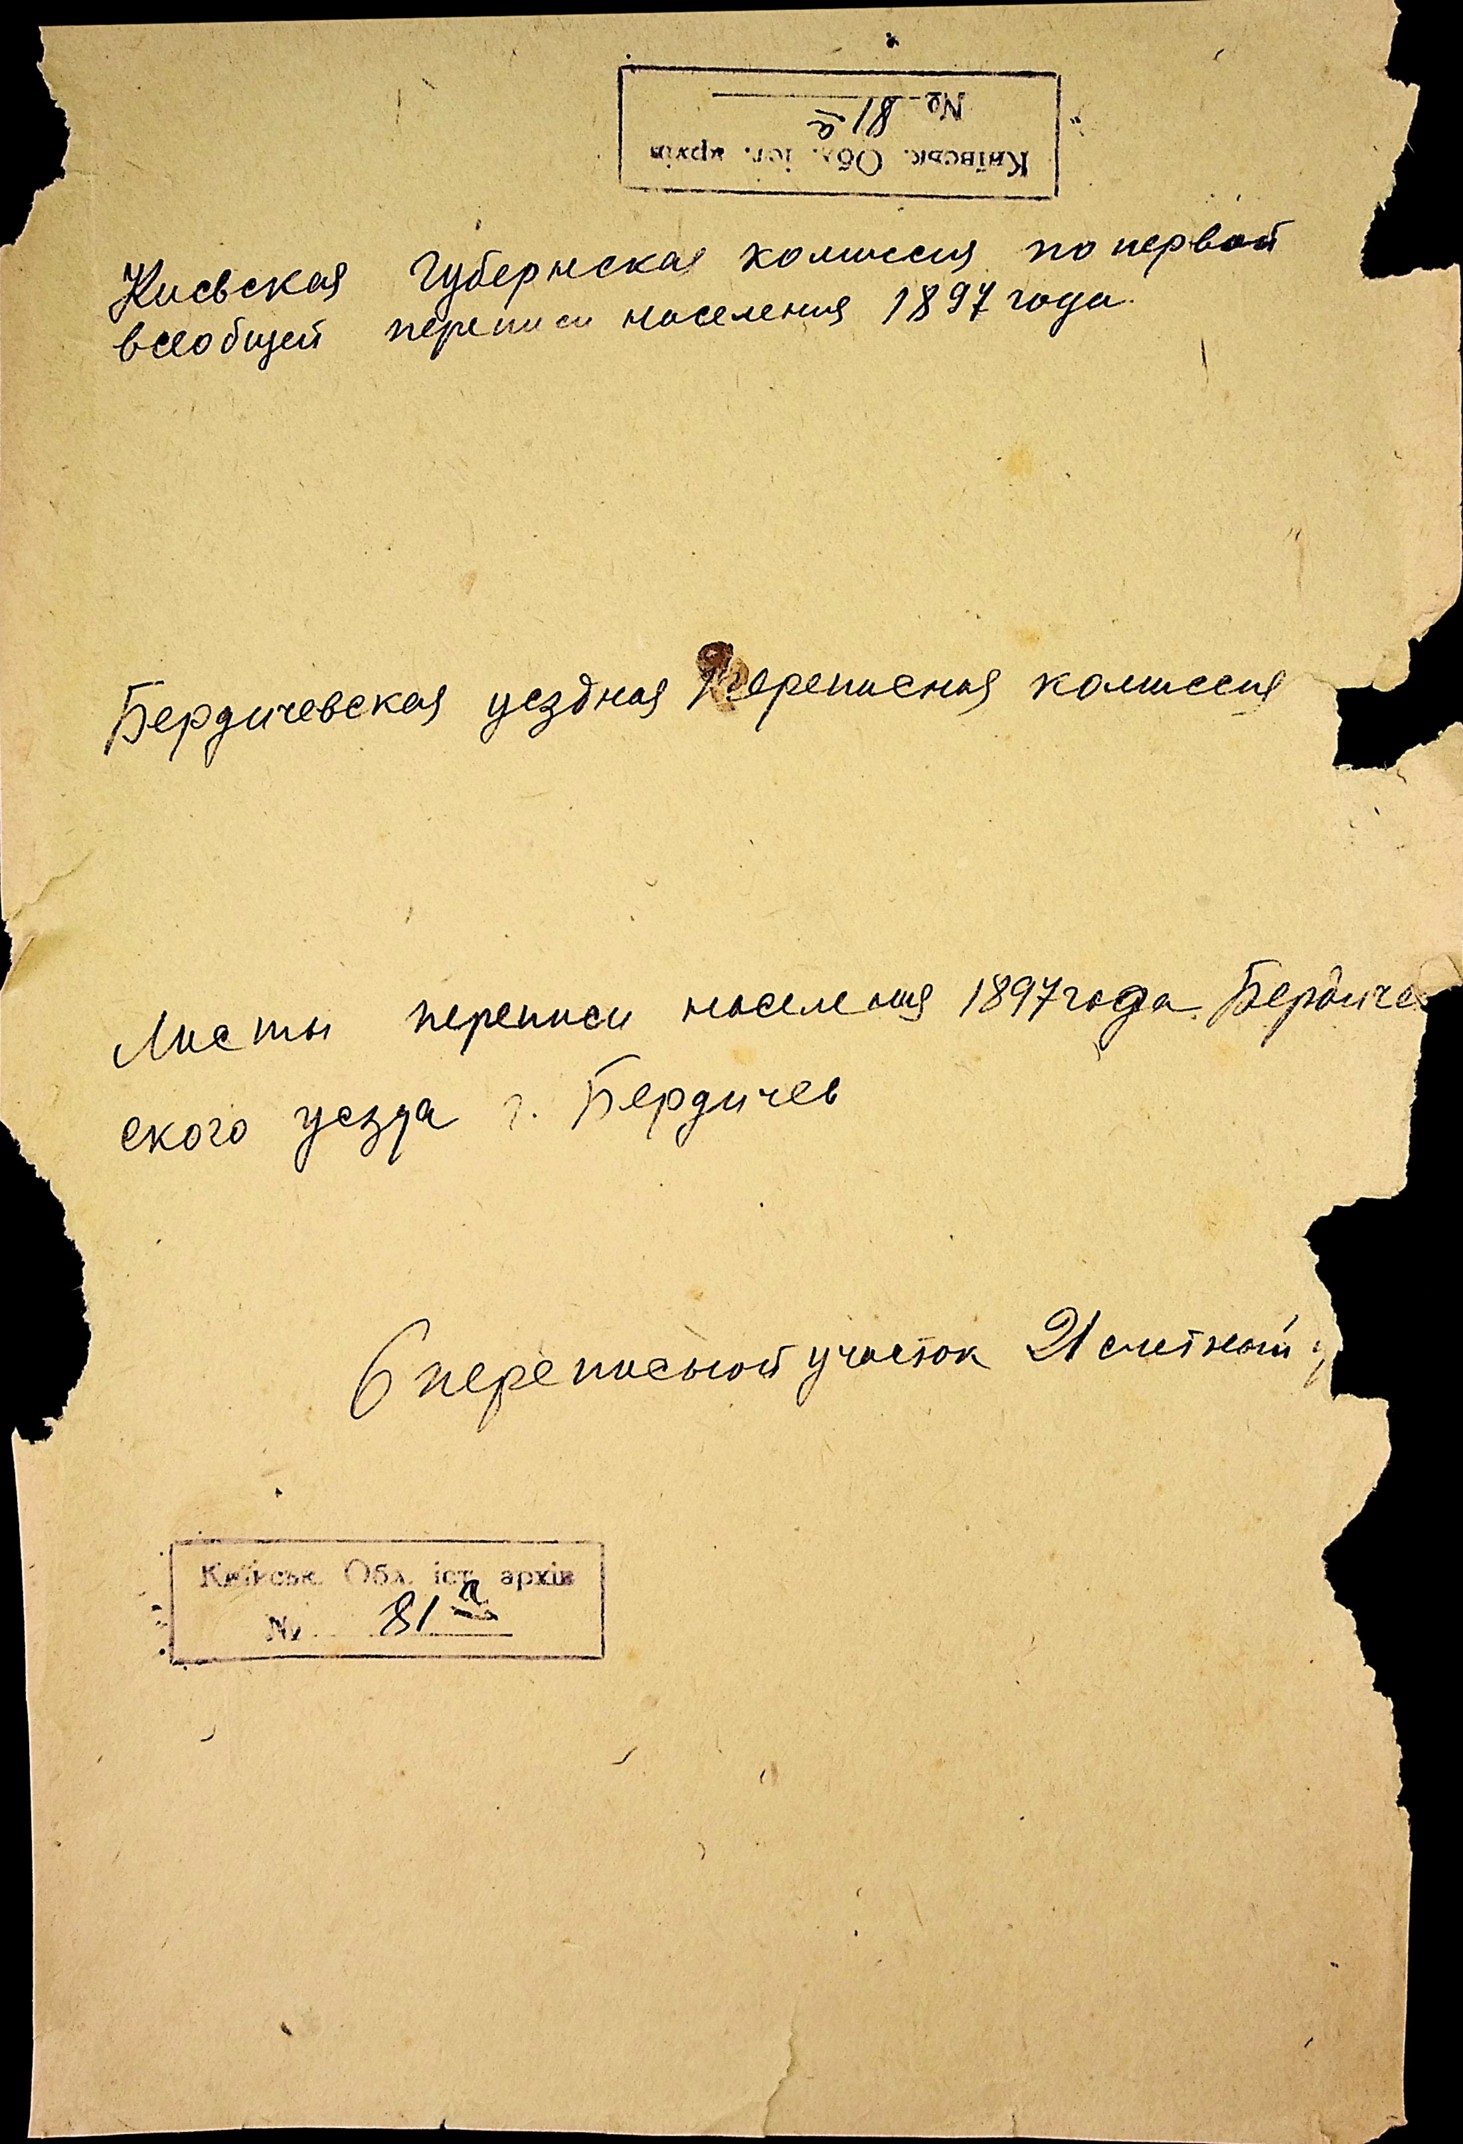 Київськ. Обл. іст. архів
№ 81 а
Киевская Губернская комиссия по первой
всеобщей переписи населения 1897 года.
Бердичевская уездная Переписная комиссия
Листы переписи населения 1897 года Бердичев
ского уезда г. Бердичев
6 переписной участок 21 счетный у
Київськ. Обл. іст. архів
№ 81 а